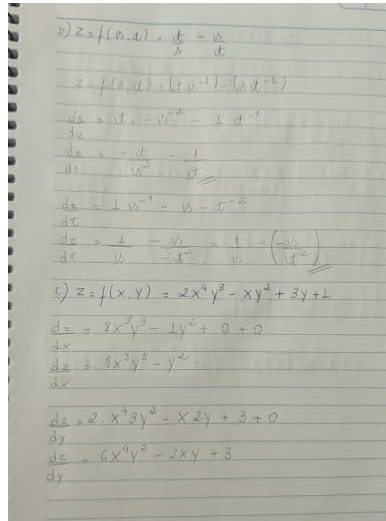 b) z = f(s,t) = t/s - s/t
z = f(s,t) = (t s⁻¹) - (s t⁻¹)
dz/ds = t . - s⁻² - 1 t⁻¹
dz/ds = - t/s² - 1/t
dz/dt = 1 s⁻¹ - s - t⁻²
dz/dt = 1/s - s/-t² = 1/s - (-s/t²)
c) z = f(x,y) = 2x⁴y³ - xy² + 3y + 1
dz/dx = 8x³y³ - 1y² + 0 + 0
dz/dx = 8x³y³ - y²
dz/dy = 2 . x⁴3y² - x2y + 3 + 0
dz/dy = 6x⁴y² - 2xy + 3